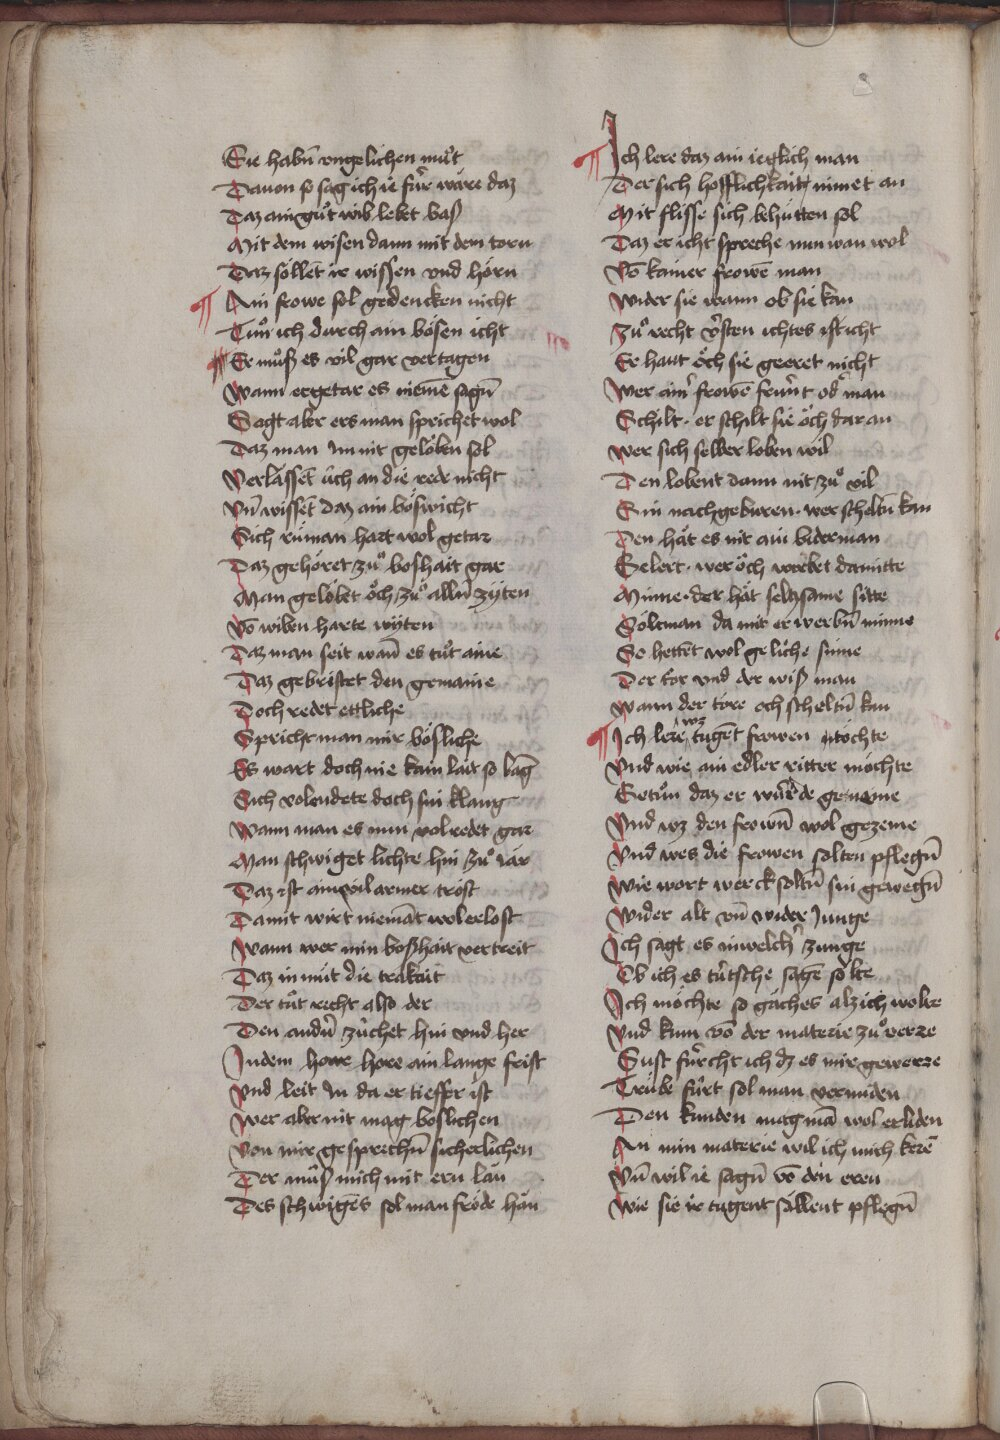 Sie habn̄ vngelichen mu̍t
Dauon so sag ich ie fu̍r wäre daz
Daz ain gu̍t wib lebet baß
Mit dem wisen dann mit dem torn
Daz söllēt ir wissen vnd hörn
Ain frowe sol gedencken nicht
Tuͦn ich durch ain bösen icht
Er muͦß es vil gar vertagen
Wann er getar es niemē sagn̄
Sagt aber ers man sprichet wol
Daz man im nit gelöben sol
Verlässēt u̍ch an die rede nicht
Vn̄ wissēt daz ain böswicht
Sich ru̍man hart wol getar
Daz gehöret zuͦ boshait gar
Man gelöbet öch zuͦ alln̄ zyten
Vō wiben harte wyten
Daz man seit wān es tu̍t aine
Daz gebristet den gemaine
Doch redet ettliche
Sprichr man mir bösliche
Es wart doch nie kain lait so lāg
Sich volendete doch sin klang
Wann man es nun vol redet gar
Man schwiget lichte hin zuͦ iar
Daz ist ain vil armer tröst
Da mit wirt niemāt wol erlost
Wann wer min boßhait vertreit
Daz in müt die trakait
Der tu̍t recht also der
Den andn̄ zu̍chet hin vnd her
In dem howe hore ain lange frist
Vnd leit in da er tieffer ist
Wer aber nit mag boslichen
Von mir gesprechn̄ sicherlichen
Der mu̍ß mich mit ern lan
Des schwigēs sol man fröde han
Ich lere daz ain ieglich man
Der sich hofflichkait nimet an
Mit flisse sich behütten sol
Daz er icht spreche nun wan wol
Vō kainer frowē man
Wider sie wann ob sie kan
Zuͦ recht v̄sten ichtes icht
Er haut öch sie geeret nicht
Wer ain̄ frowē frün̄t od̄ man
Schilt · er schilt sie öch dar an
Wer sich selber loben wil
Den lobent dann nit zuͦ vil
Sin nachgeburen · wer scheltn̄ kan
Den hät es nit ain biderman
Gelert · wer öch wirbet da mitte
Minne · der hät seltzsame sitte
Sölt man da mit erwerbn̄ minne
So hettēt wol geliche sinne
Der tor vnd der wiß man
Wann der tore och scheltn̄ kan
Ich lere wz tugēt frowen töchte
Vnd wie ain edler ritter möchte
Getu̍n daz er wu̍rde genäme
Vnd wz den frown̄ wol gezeme
Vnd wes die frowen solten pflegn̄
Wie wort werck soltn̄ sin gewegn̄
Wider alt vn̄ wider Junge
Ich sagt es in welch̄ zunge
Ob ich es tu̍tsche sagē solte
Ich möchte so gäches alz ich wolte
Vnd kum vō der materie zuͦ verre
Sust fu̍rcht ich dz es mir gewerre
Trübe fu̍rt sol man vermiden
Den kunden mag mā wol erliden
An min materie wil ich mich kerē
Vn̄ wil ie sagn̄ vō den eren
Wie sie ir tugent söllent pflegn̄